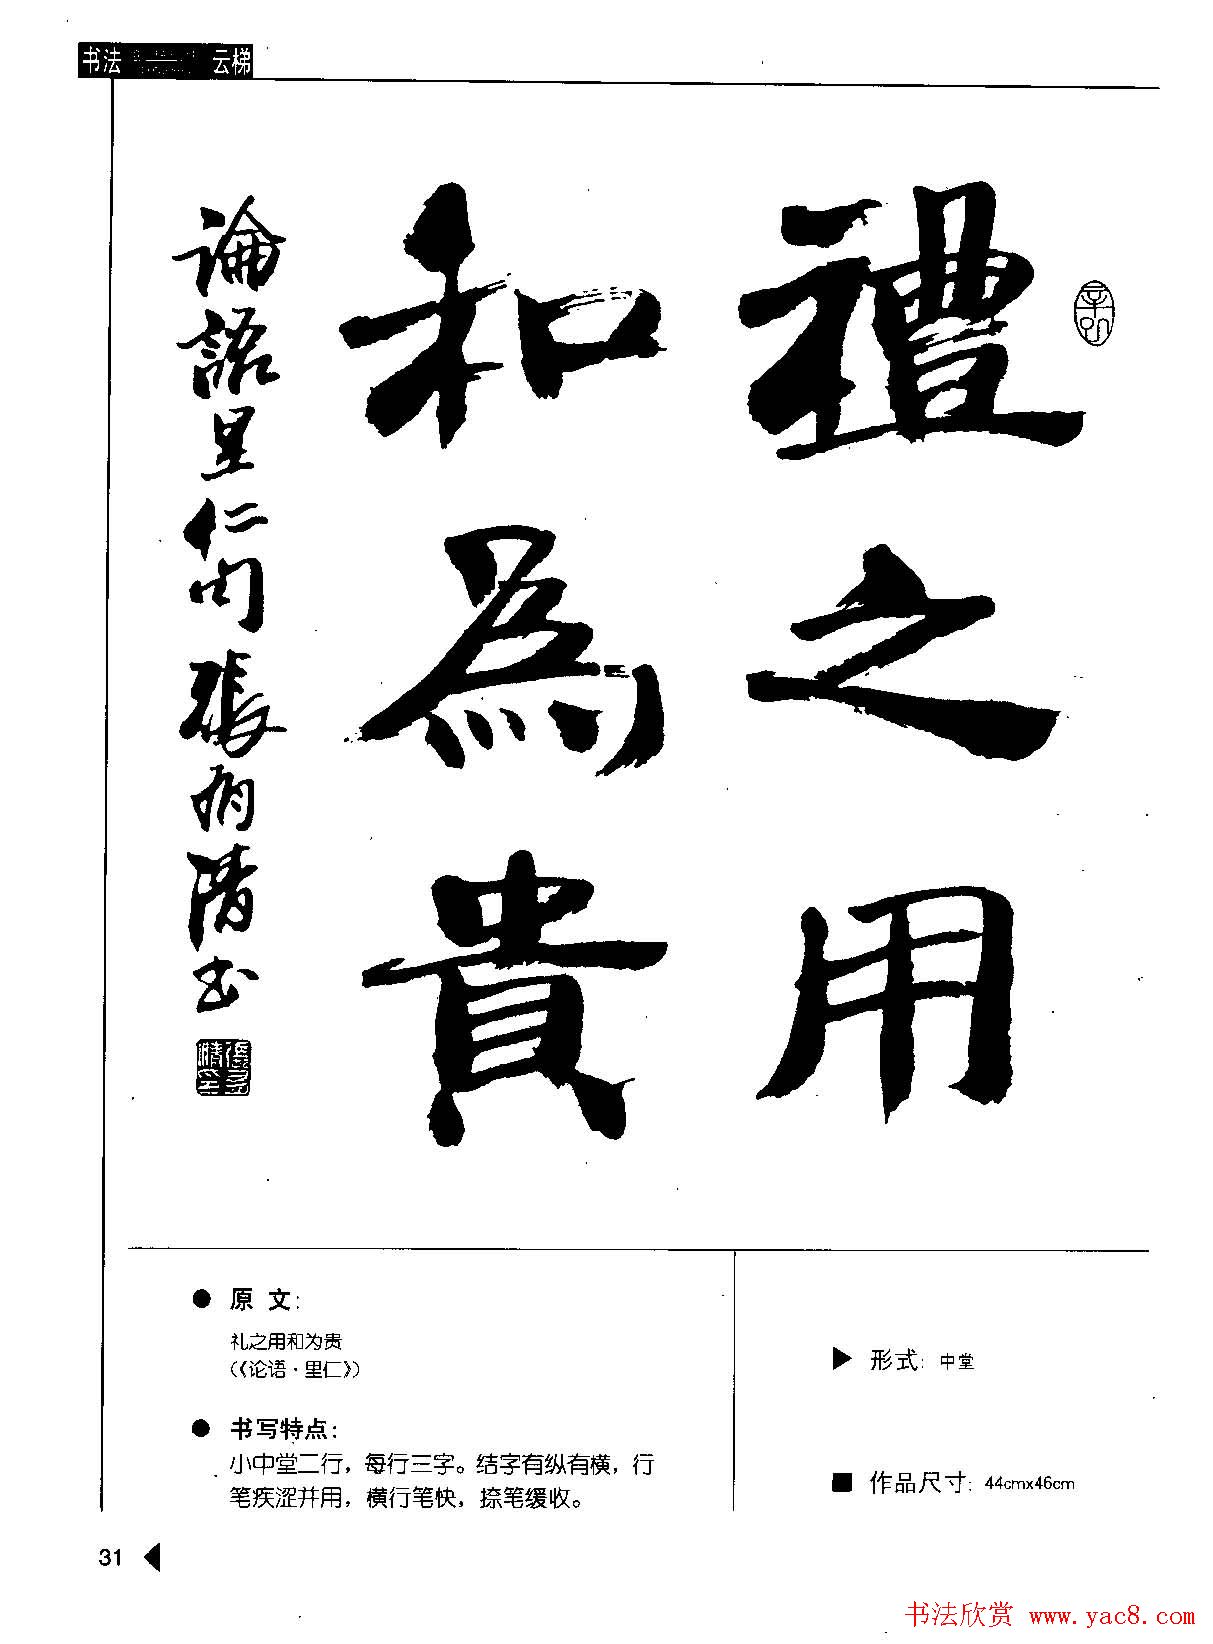 书法 云梯
禮之用
和為貴
論語里仁句 張有清書
原 文：
礼之用和为贵
（《论语·里仁》）
书写特点：
小中堂二行，每行三字。结字有纵有横，行
笔疾涩并用，横行笔快，捺笔缓收。
形式：中堂
作品尺寸：44cmx46cm
31
书法欣赏 www.yac8.com